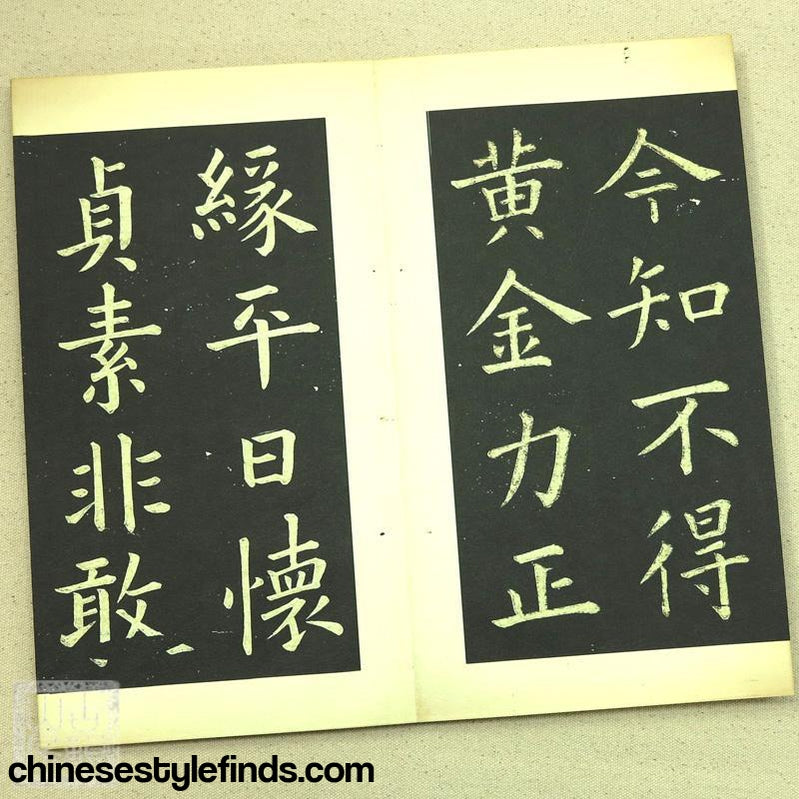 今知不得
黄金力正
緣平日懷
貞素非敢
chinesestylefinds.com